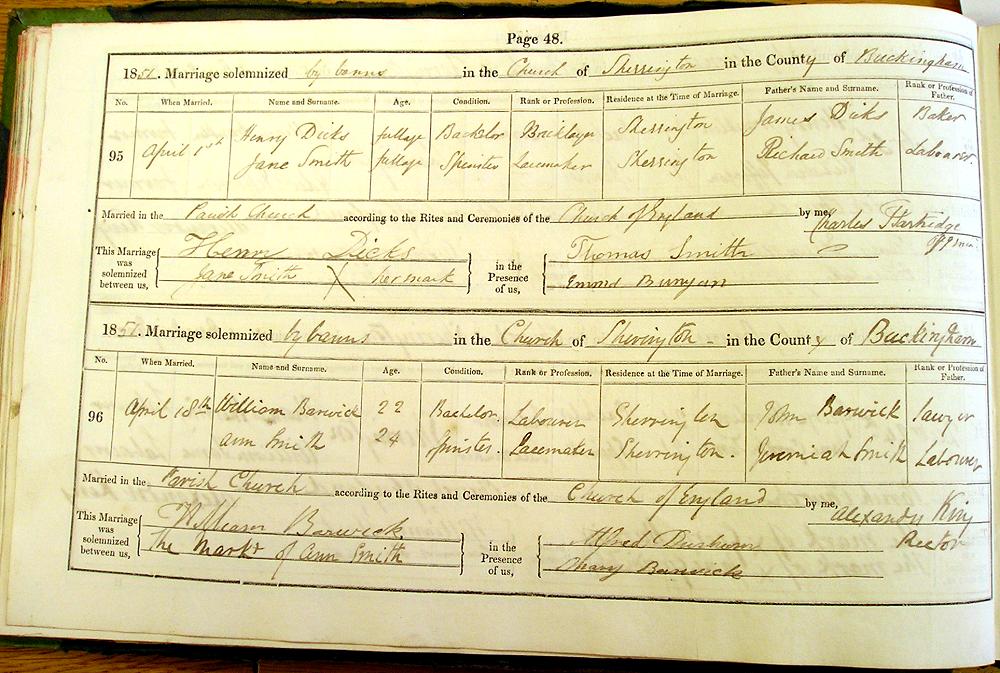 Page 48.
1851. Marriage solemnized by banns in the Church of Sherrington in the County of Buckingham
No. When Married. Name and Surname. Age. Condition. Rank or Profession. Residence at the Time of Marriage. Father's Name and Surname. Rank or Profession of Father.
95 April 1st Henry Dicks fullage Bachelor Bricklayer Sherrington James Dicks Baker
Jane Smith fullage Spinster Lacemaker Sherrington Richard Smith Labourer.
Married in the Parish Church according to the Rites and Ceremonies of the Church of England by me, Charles Partridge
This Marriage was solemnized between us, Henry Dicks in the Presence of us, Thomas Smith
Jane Smith X her mark Bunyan
1851. Marriage solemnized by banns in the Church of Sherrington - in the County of Buckingham
No. When Married. Name and Surname. Age. Condition. Rank or Profession. Residence at the Time of Marriage. Father's Name and Surname. Rank or Profession of Father.
96 April 18th William Barwick 22 Bachelor Labourer Sherrington John Barwick lawyer
Ann Smith 24 Spinster. Lacemaker Sherrington. Jeremiah Smith Labourer
Married in the Parish Church according to the Rites and Ceremonies of the Church of England by me, Alexander King
Rector
This Marriage was solemnized between us, William Barwick in the Presence of us, Alfred
The Mark of Ann Smith Mary Barwick